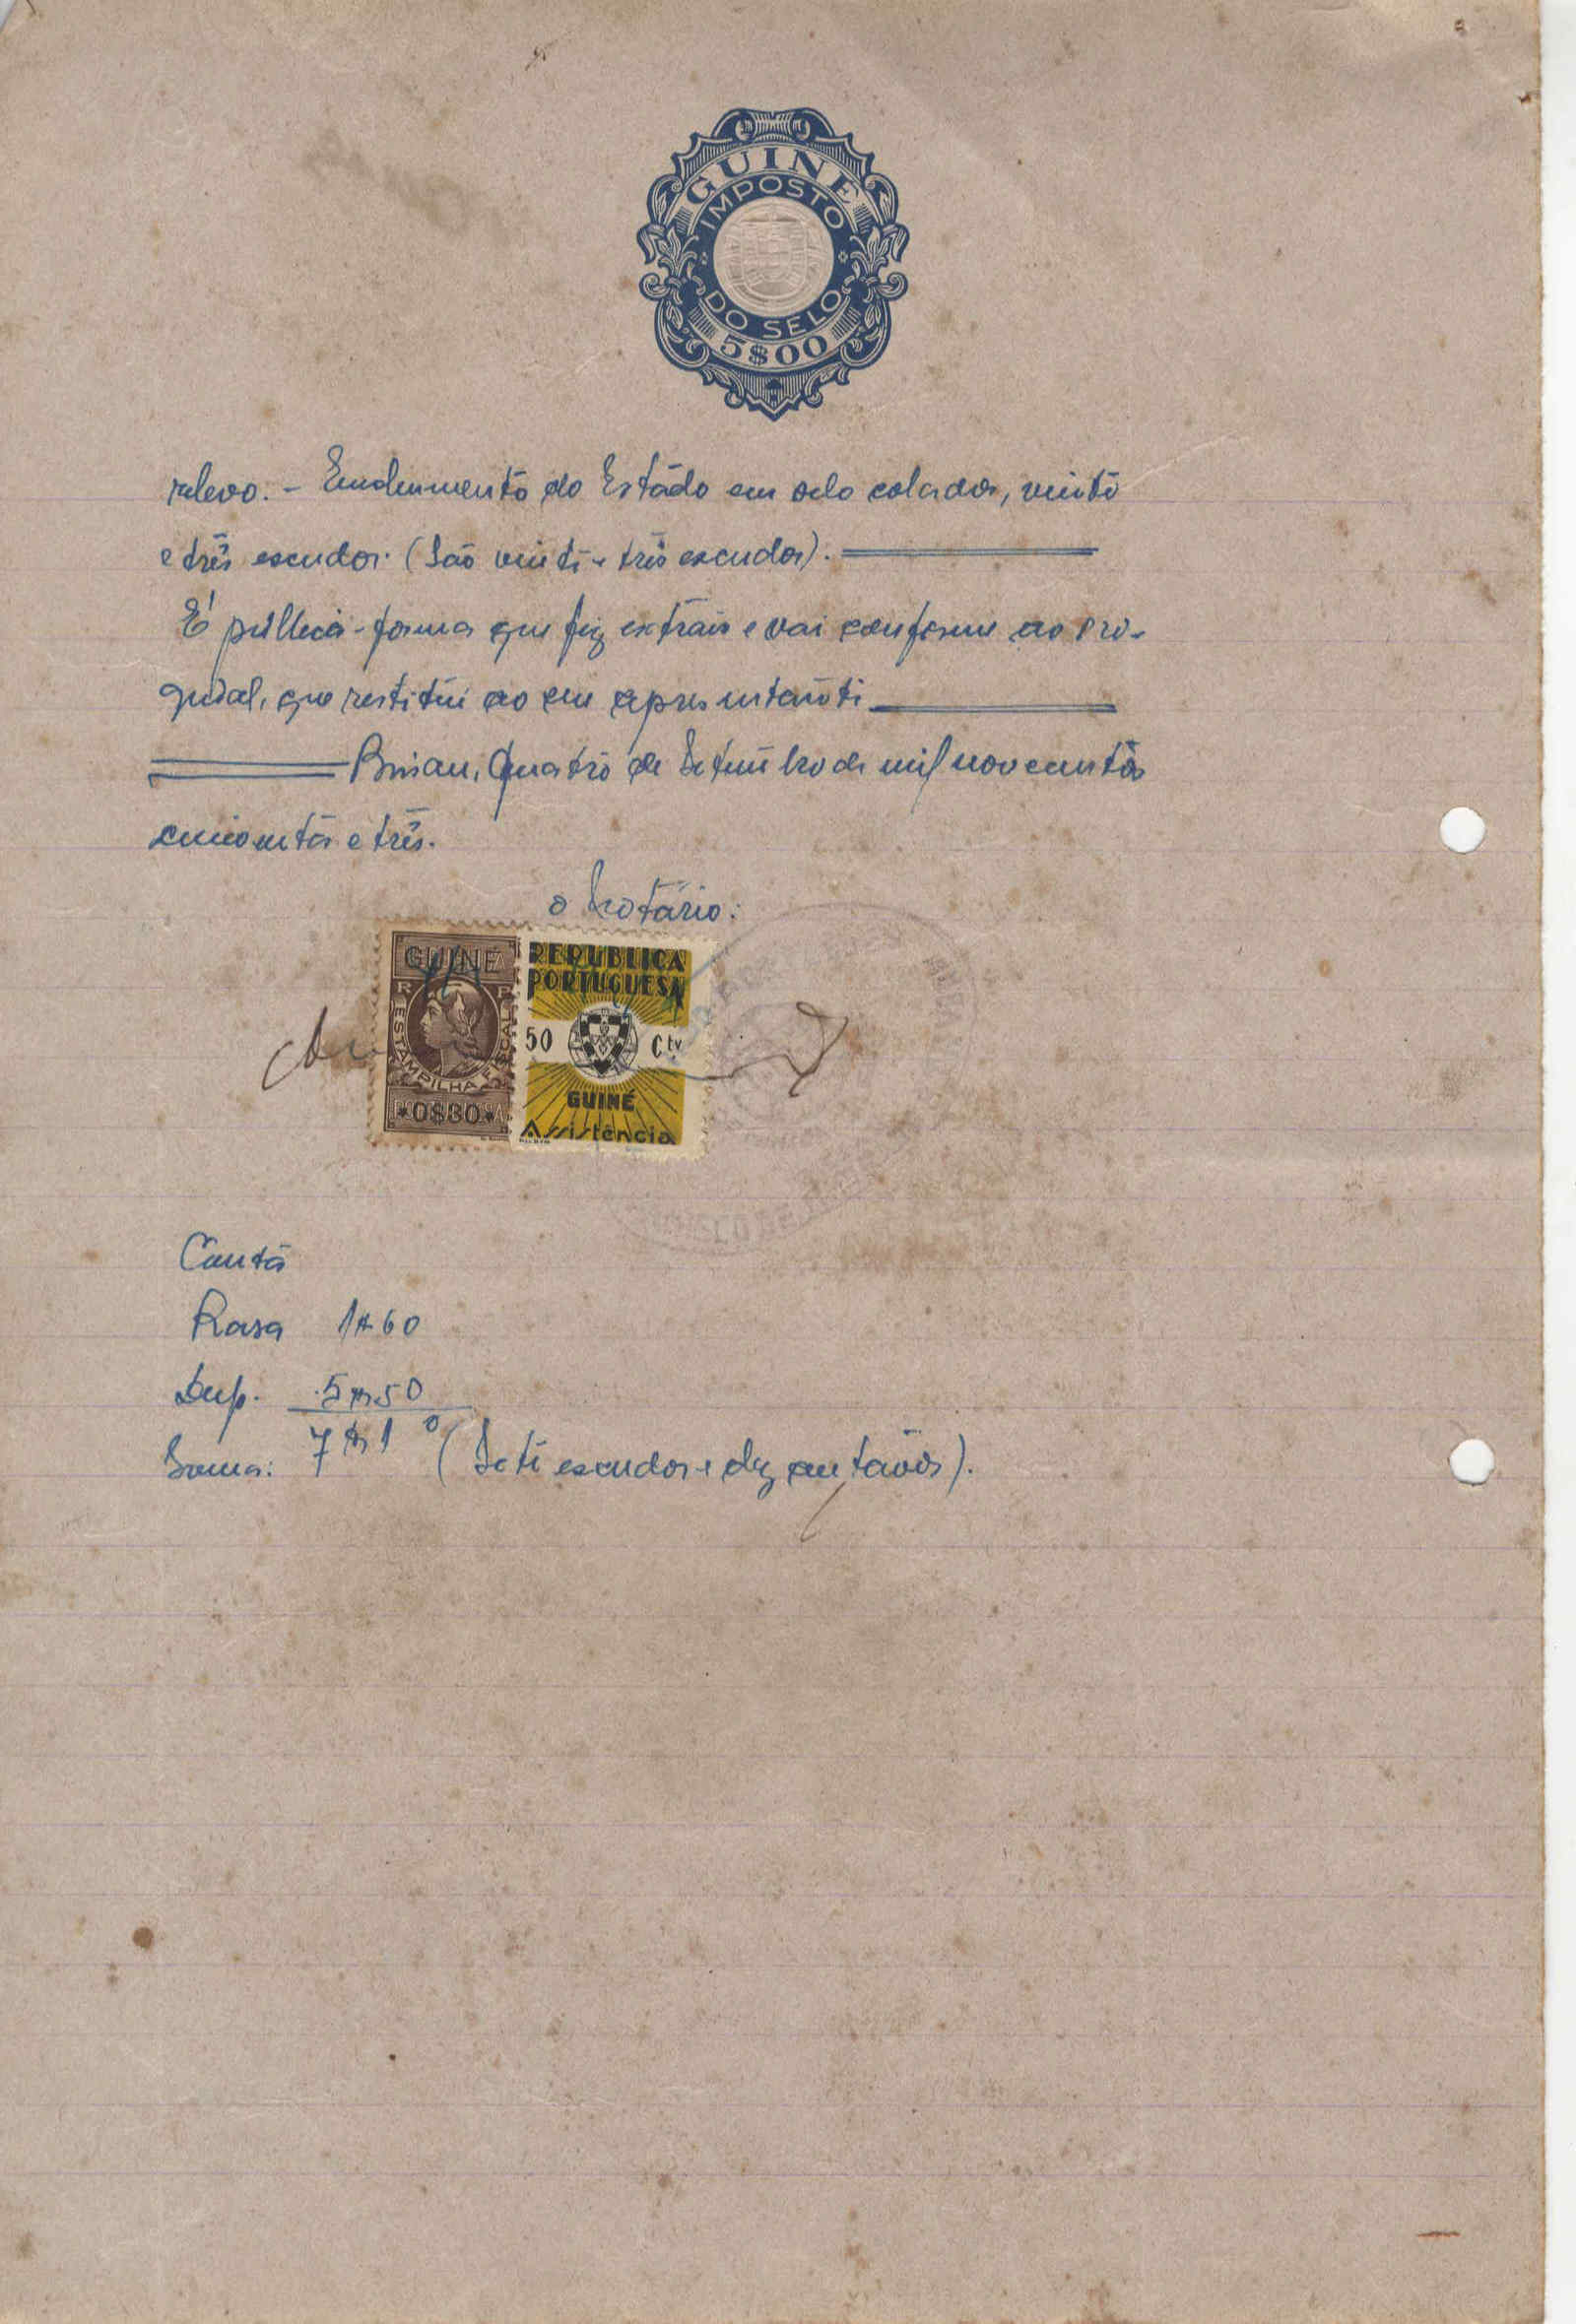 GUINÉ
IMPOSTO
DO SELO
5$00
relevo. - Emolumento do Estado em selo colados, vinte
e três escudos. (São vinte e três escudos).
É pública-forma que fiz extrair e vai conforme ao ori-
ginal, que restitui ao seu apresentante
Bissau, quatro de Setembro de mil novecentos
cincoenta e três.
o Notário:
GUINÉ
R P
ESTAMPILHA FISCAL
*0$30*
REPUBLICA
PORTUGUESA
50 Ctv
GUINÉ
Assistência
Conta
Rasa 1$60
Sup. 5$50
Soma: 7$10 (Sete escudos e dez centavos).